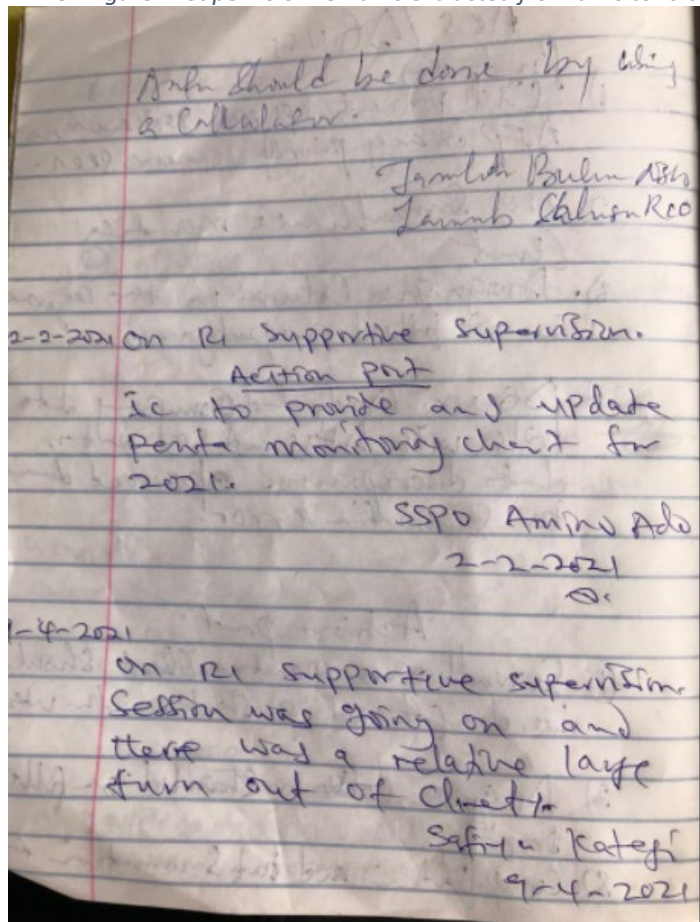 should be done by using
a Calculator.
2-2-2021 on RI supportive supervision.
Acition port
ic to provide and update
penta monitoring chart for
2021.
SSPO Aminu Ado
2-2-2021
-4-2021
on RI supportive supervision.
Session was going on and
there was a relative large
turn out of
Safiyu Kategi
9-4-2021